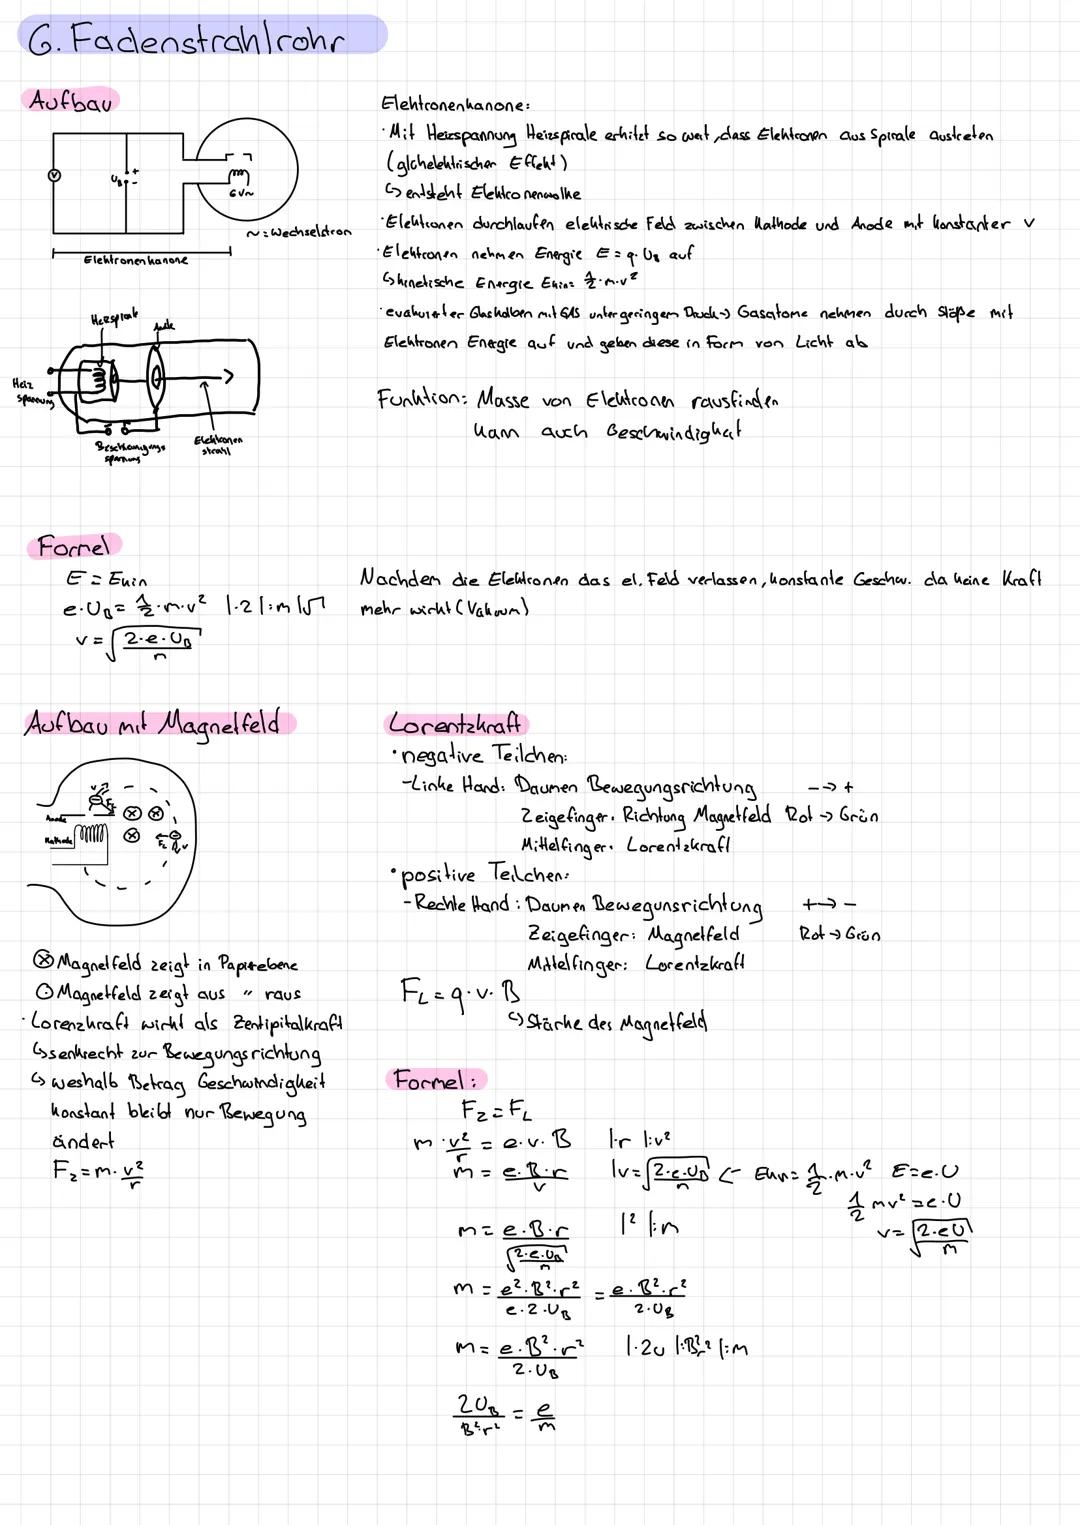 6. Fadenstrahlrohr
Aufbau
UB
+
-
V
6V~
~: Wechselstrom
Elektronenkanone
Heizspirale
Anode
Heiz
spannung
Beschleunigungs
spannung
Elektronen
strahl
Elektronenkanone:
· Mit Heizspannung Heizspirale erhitzt so weit, dass Elektronen aus Spirale austreten
(glühelektrischer Effekt)
↳ entsteht Elektronenwolke
· Elektronen durchlaufen elektrische Feld zwischen Kathode und Anode mit konstanter v
· Elektronen nehmen Energie E = q · UB auf
↳ kinetische Energie Ekin = 1/2 · m · v²
· evakuierter Glaskolben mit GAS unter geringem Druck -> Gasatome nehmen durch Stöße mit
Elektronen Energie auf und geben diese in Form von Licht ab
Funktion: Masse von Elektronen rausfinden
kann auch Geschwindigkeit
Formel
E = Ekin
e · UB = 1/2 · m · v² |·2 |:m |√
v = √(2·e·UB / m)
Nachdem die Elektronen das el. Feld verlassen, konstante Geschw. da keine Kraft
mehr wirkt (Vakuum)
Aufbau mit Magnetfeld
Anode
Kathode
v
FL
FL
v
⊗ Magnetfeld zeigt in Papierebene
⊙ Magnetfeld zeigt aus " raus
· Lorenzkraft wirkt als Zentipitalkraft
↳ senkrecht zur Bewegungsrichtung
↳ weshalb Betrag Geschwindigkeit
konstant bleibt nur Bewegung
ändert
Fz = m · v²/r
Lorentzkraft
· negative Teilchen:
- Linke Hand: Daumen Bewegungsrichtung - -> +
Zeigefinger: Richtung Magnetfeld Rot -> Grün
Mittelfinger: Lorentzkraft
· positive Teilchen:
- Rechte Hand: Daumen Bewegunsrichtung + -> -
Zeigefinger: Magnetfeld Rot -> Grün
Mittelfinger: Lorentzkraft
FL = q · v · B
↳ Stärke des Magnetfeld
Formel:
Fz = FL
m · v²/r = e · v · B |·r |:v²
m = e·B·r / v |v = √(2·e·UB / m) <- Ekin = 1/2 · m · v² E = e · U
1/2 mv² = e · U
v = √(2·eU / m)
m = e·B·r / √(2·e·UB / m) |² |:m
m = e²·B²·r² / e·2·UB = e·B²·r² / 2·UB
m = e·B²·r² / 2·UB |·2U |:B²r² |:m
2UB / B²·r² = e / m